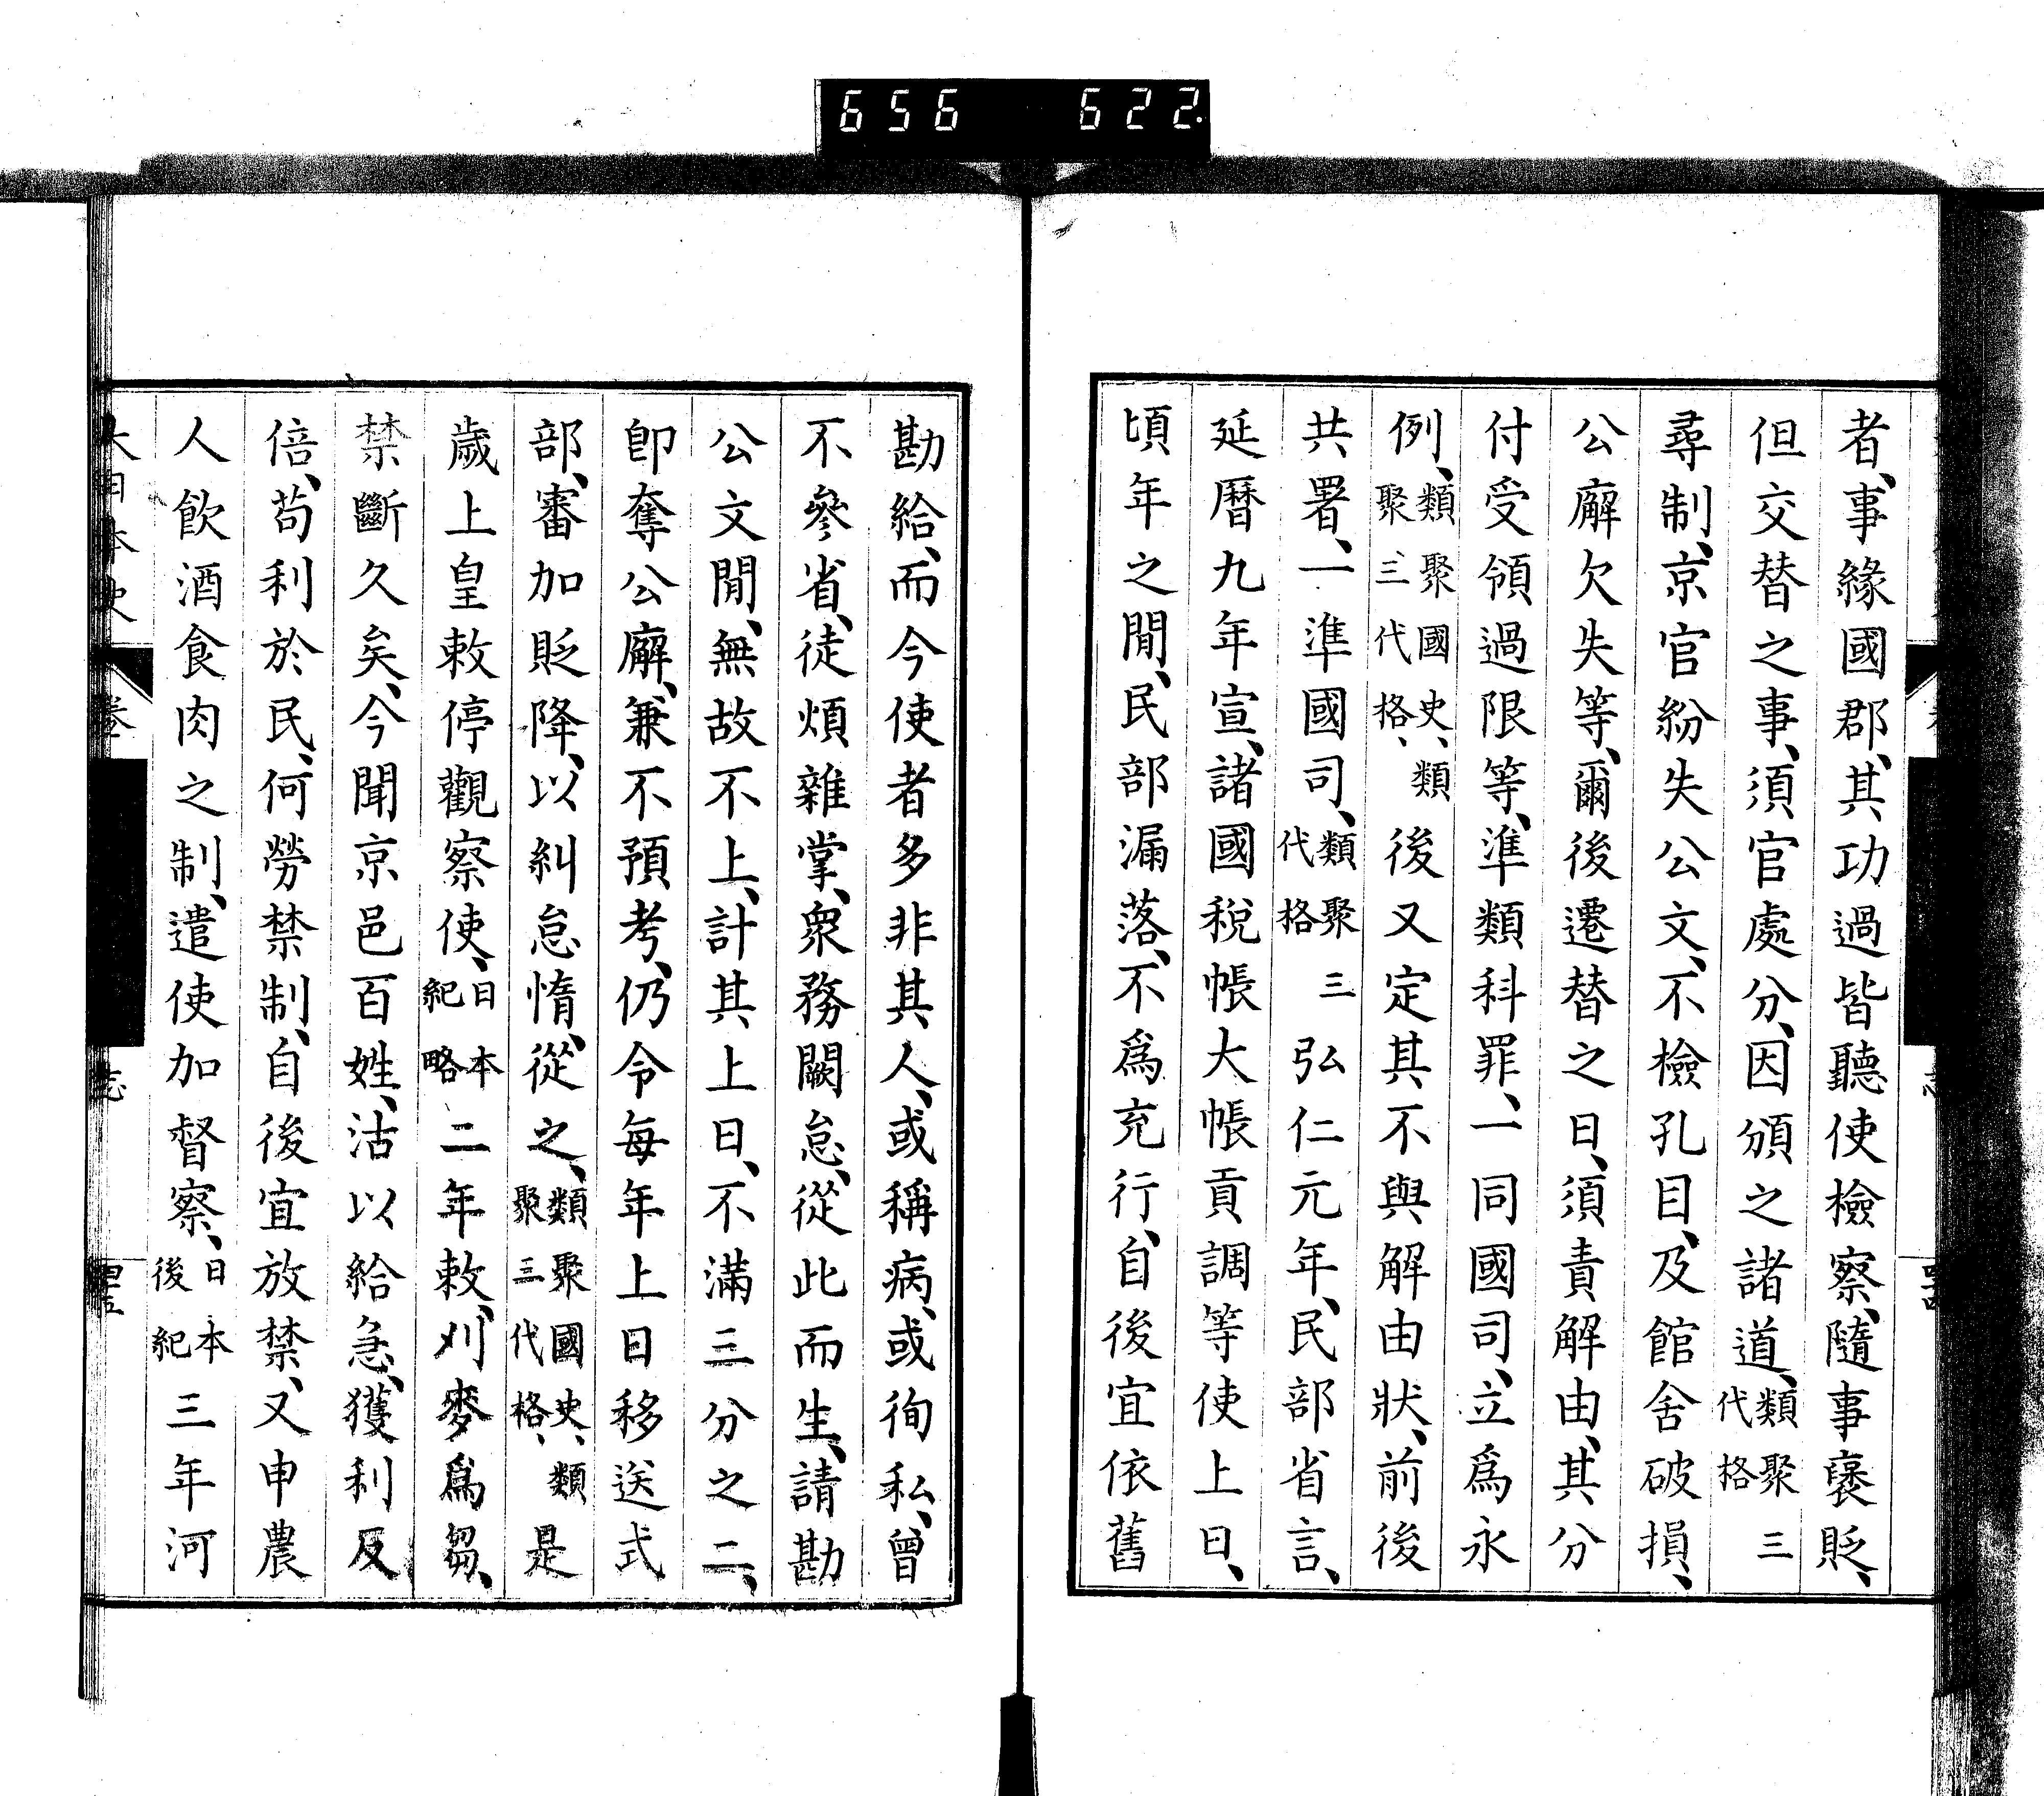 656 622.
者、事緣國郡、其功過皆聽使檢察、隨事褒貶、
但交替之事、須官處分、因頒之諸道、類聚三代格
尋制、京官紛失公文、不檢孔目、及館舍破損、
公廨欠失等、爾後遷替之日、須責解由、其分
付受領過限等、準類科罪、一同國司、立爲永
例、類聚國史、類聚三代格、後又定其不與解由狀、前後
共署、一準國司、類聚三代格弘仁元年、民部省言、
延曆九年宣、諸國稅帳大帳貢調等使上日、
頃年之閒、民部漏落、不爲充行、自後宜依舊
勘給、而今使者多非其人、或稱病、或徇私、曾
不參省、徒煩雜掌、衆務闕怠、從此而生、請勘
公文閒、無故不上、計其上日、不滿三分之二、
卽奪公廨、兼不預考、仍令每年上日移送式
部、審加貶降、以糾怠惰、從之、類聚國史、類聚三代格、是
歲上皇敕停觀察使、日本紀略二年敕、刈麥爲芻、
禁斷久矣、今聞京邑百姓、沽以給急、獲利反
倍、苟利於民、何勞禁制、自後宜放禁、又申農
人飮酒食肉之制、遣使加督察、日本後紀三年河
大日本史 卷 志 四五